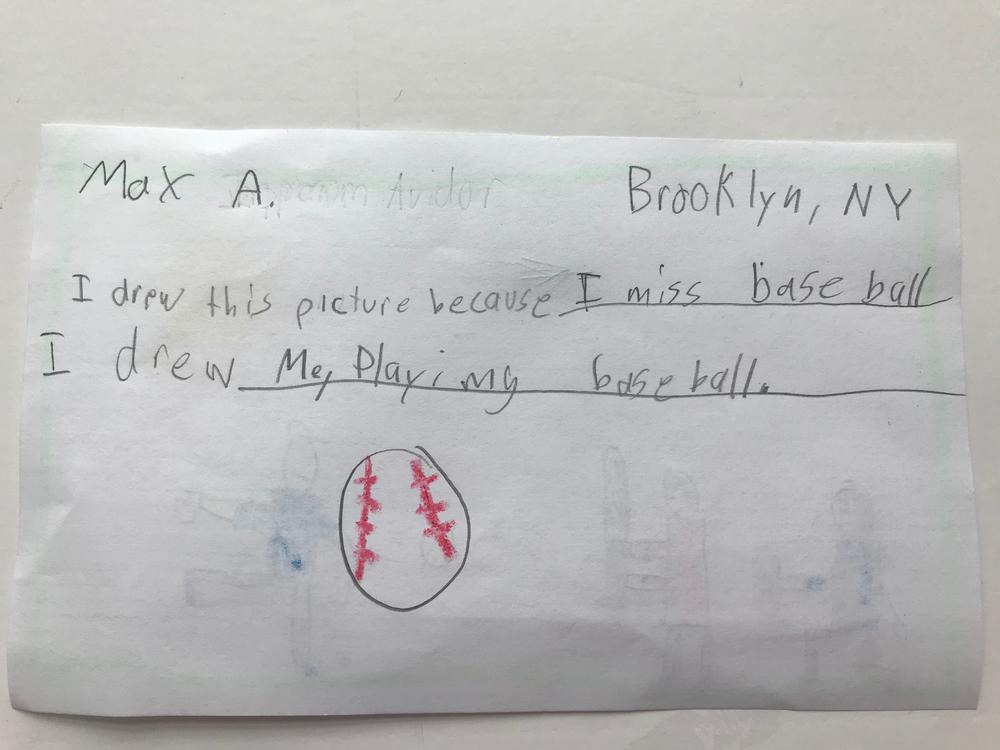 Max A. Brooklyn, NY
I drew this picture because I miss base ball
I drew Me, Playimg base ball.